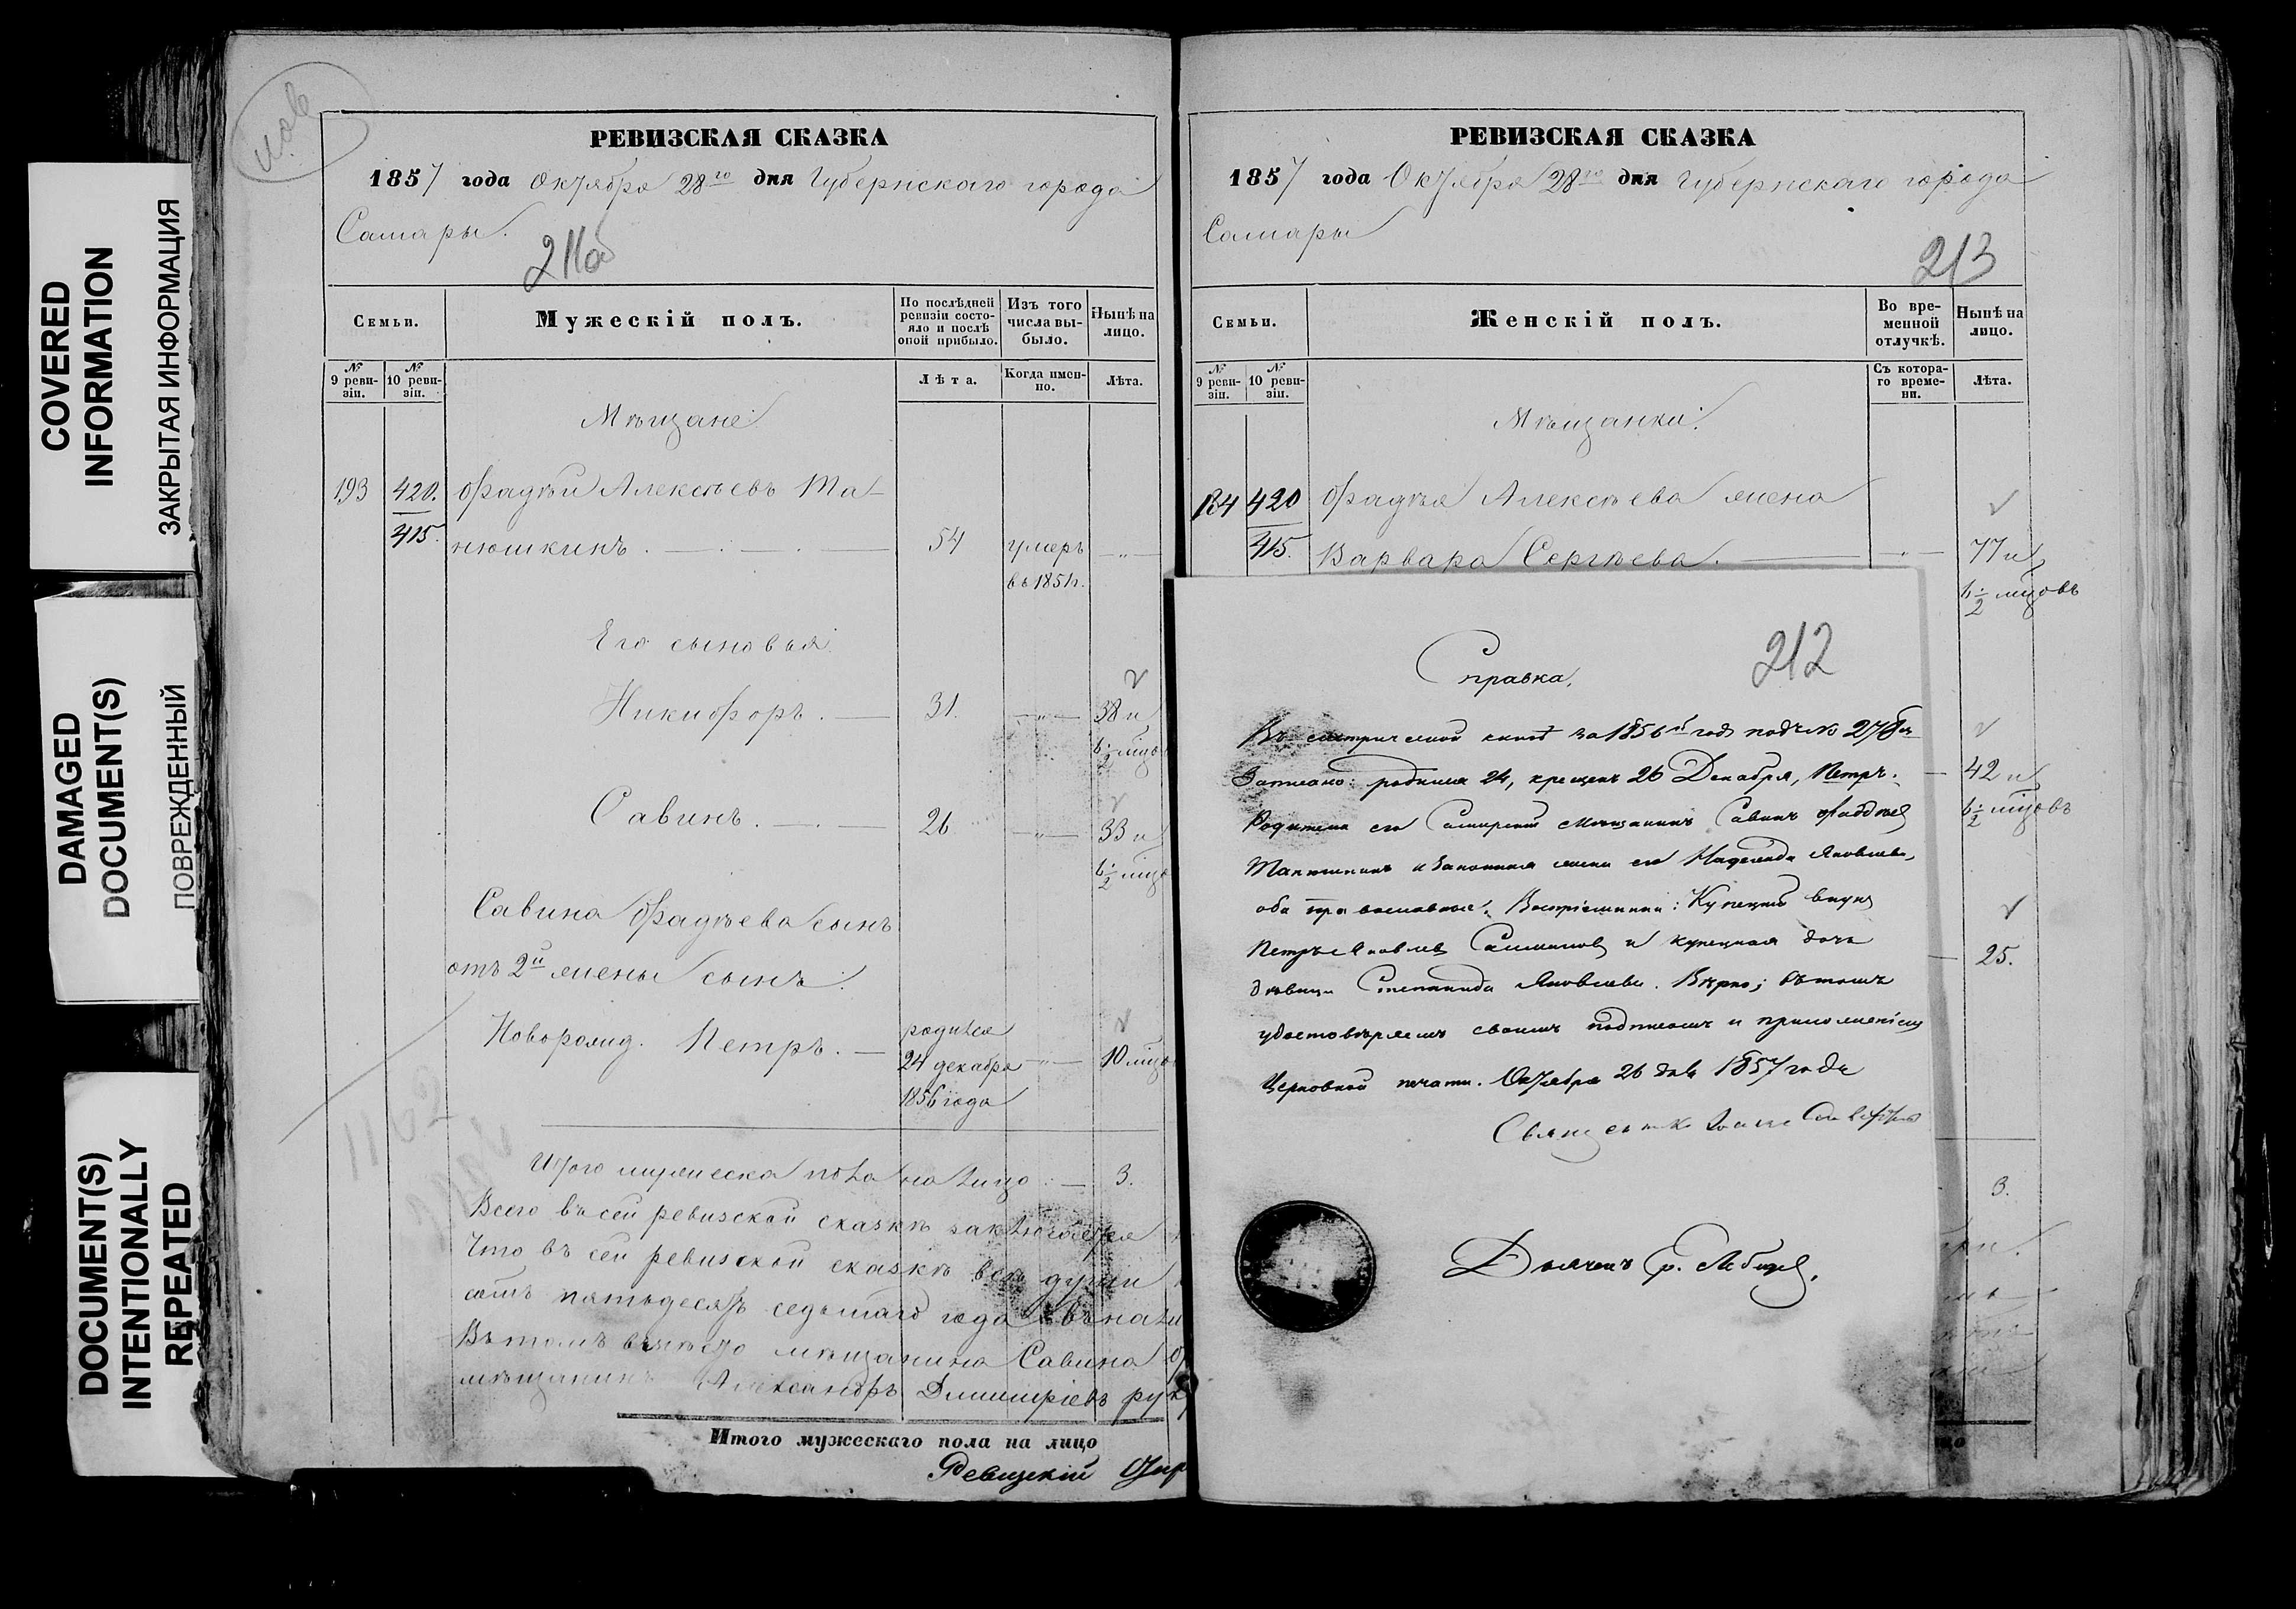 COVERED
INFORMATION
ЗАКРЫТАЯ ИНФОРМАЦИЯ
DAMAGED
DOCUMENT(S)
ПОВРЕЖДЕННЫЙ
DOCUMENT(S)
INTENTIONALLY
REPEATED
РЕВИЗСКАЯ СКАЗКА
1857 года Октября 28го дня Губернскаго города
Самары.
211а
Семьи.
Мужескій полъ.
По послѣдней ревизіи состояло и послѣ оной прибыло.
Изъ того числа выбыло.
Нынѣ на лицо.
№ 9 ревизіи.
№ 10 ревизіи.
Лѣта.
Когда именно.
Лѣта.
Мѣщане
193 420. Фадѣй Алексѣевъ Ма-
415. нюшкинъ. 54 умеръ
въ 185
Его сыновья
Никифоръ. 31. 38 и
Савинъ. 26 33 и
Савина Фадѣева сынъ
отъ 2й жены сынъ.
Новорожд. Петръ. родился
24 декабря 10
1856 года
Итого мужеска пола на лицо 3.
Всего въ сей ревизской сказкѣ заключается
Что въ сей ревизской сказкѣ всѣ души
сотъ пятьдесятъ седьмаго года въ нали
Въ томъ вмѣсто мѣщанина Савина
мѣщанинъ Александръ Дмитріевъ рук
Итого мужескаго пола на лицо
РЕВИЗСКАЯ СКАЗКА
1857 года Октября 28го дня Губернскаго города
Самары
213
Семьи.
Женскій полъ.
Во временной отлучкѣ.
Нынѣ на лицо.
№ 9 ревизіи.
№ 10 ревизіи.
Съ котораго времени.
Лѣта.
Мѣщанки.
420 Фадѣя Алексѣева жена
415. Варвара Сергѣева. 77 и
42 и
25.
3.
Справка.
212
Въ метрической книгѣ за 1856й годъ подъ №
Записано: родился 24, крещенъ 26 Декабря, Петръ.
Родители его Самарскій мѣщанинъ Савинъ Фаддѣевъ
и законная жена его Надежда Яковлева,
оба православные. Воспріемники: Купецкій внукъ
Петръ Яковлевъ и купецкая дочь
дѣвица Степанида Яковлева. Вѣрно; въ томъ
удостовѣряемъ своимъ подписомъ и приложеніемъ
Церковной печати. Октября 26 дня 1857 года